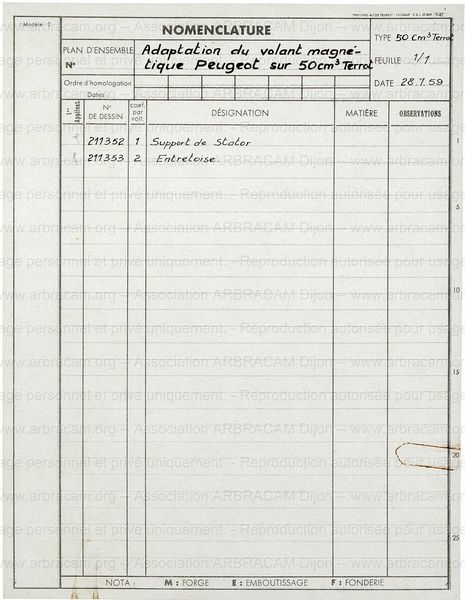 ( Modèle 2
NOMENCLATURE
PLAN D'ENSEMBLE
N°
Adaptation du volant magné-
tique Peugeot sur 50cm³ Terrot
TYPE 50 Cm³ Terrot
FEUILLE 1/1
DATE 28.7.59
Ordre d'homologation
Dates :
1re Applicat.
N° DE DESSIN
coef. par voit.
DÉSIGNATION
MATIÈRE
OBSERVATIONS
211352 1 Support de Stator
211353 2 Entretoise
1
5
10
15
20
25
NOTA : M : FORGE E : EMBOUTISSAGE F : FONDERIE
www.arbracam.org -- Association ARBRACAM Dijon -- www.arbracam.org
usage personnel et privé uniquement. - Reproduction autorisée pour usage